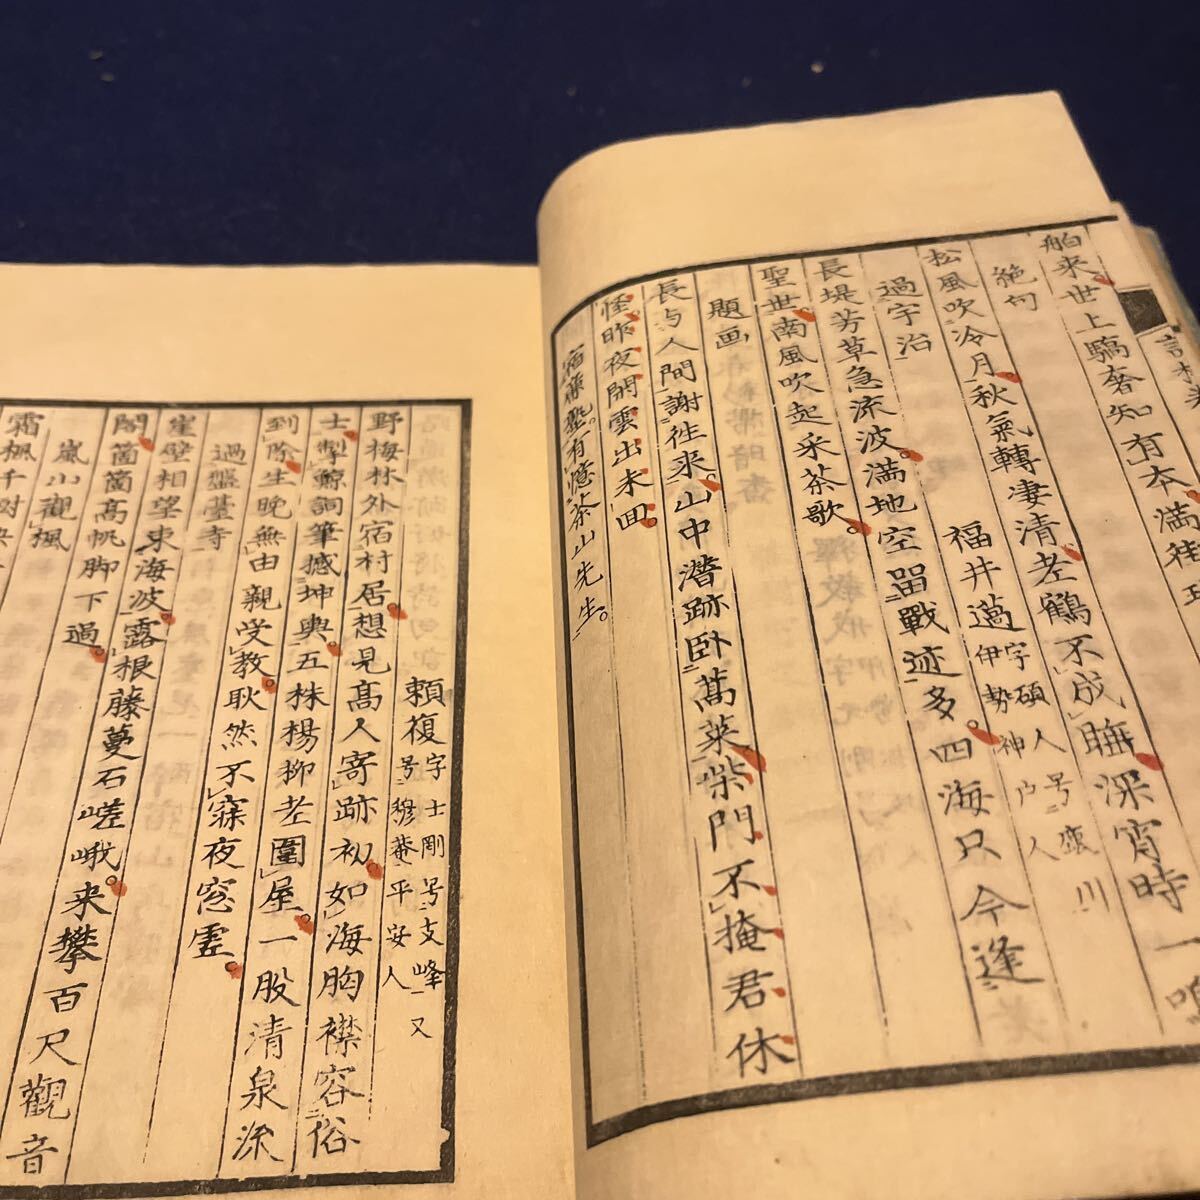 舶来世上驕奢知有本満街
絶句
松風吹冷月秋氣轉凄清老鶴不成睡深宵時一鳴
過宇治
福井邁字碩人号
伊勢神戸人
長堤芳草急流波満地空留戰迹多四海只今逢
聖世南風吹起采茶歌
題画
長与人間謝往来山中潜跡卧蒿萊柴門不掩君休
怪昨夜開雲出未回
宿藤 有憶茶山先生
頼復字士剛号支峰又
号穆菴平安人
野梅林外宿村居想見高人寄跡初如海胸襟容俗
士掣鯨詞筆撼坤輿五株楊柳老圍屋一股清泉流
到除生晩無由親受教耿然不寐夜窓虚
過盤臺寺
崖壁相望東海波露根藤蔓石嵯峨来攀百尺觀音
閣箇箇高帆脚下過
嵐山觀楓
霜楓千樹